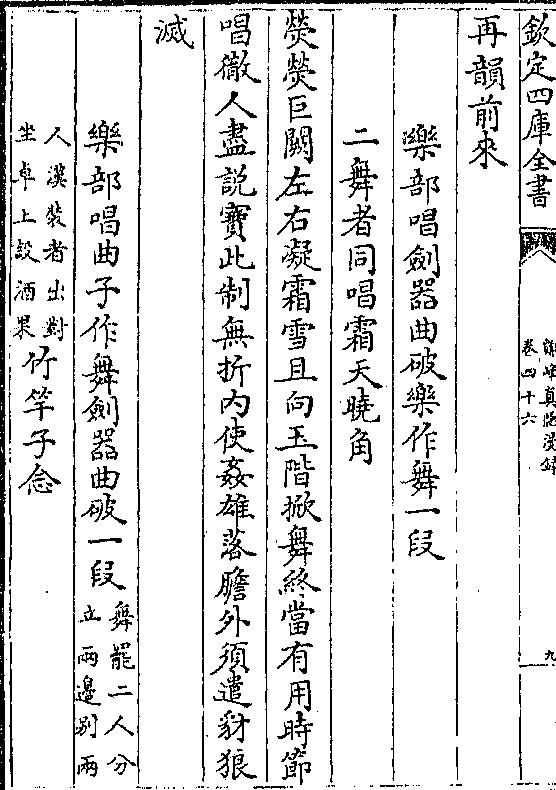 欽定四庫全書
鄮峰真隱漫録
卷四十六
九
再韻前來
樂部唱劍器曲破樂作舞一段
二舞者同唱霜天曉角
熒熒巨闕左右凝霜雪且向玉階掀舞終當有用時節
唱徹人盡説寶此制無折内使姦雄落膽外須遣豺狼
滅
樂部唱曲子作舞劍器曲破一段舞罷二人分
立兩邊别兩
人漢裝者出對
坐卓上設酒果竹竿子念